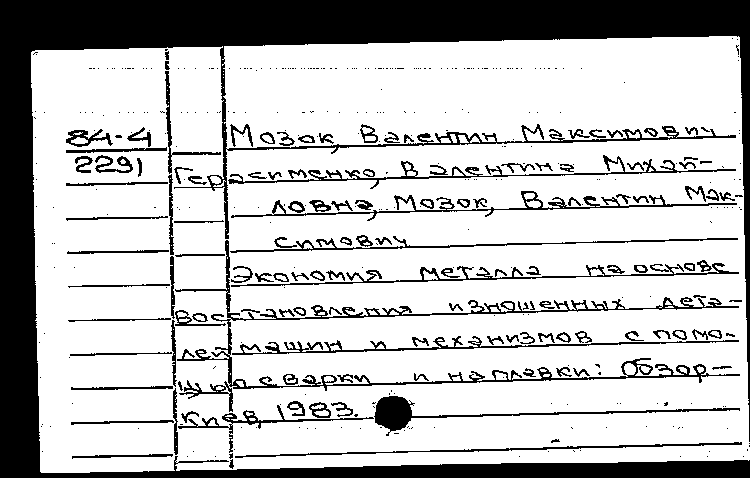 84-4
2291
Мозок, Валентин Максимович
Герасименко, Валентина Михай-
ловна, Мозок, Валентин Мак-
симович
Экономия металла на основе
восстановления изношенных дета-
лей машин и механизмов с помо-
щью сварки и наплавки: Обзор—
Киев, 1983.